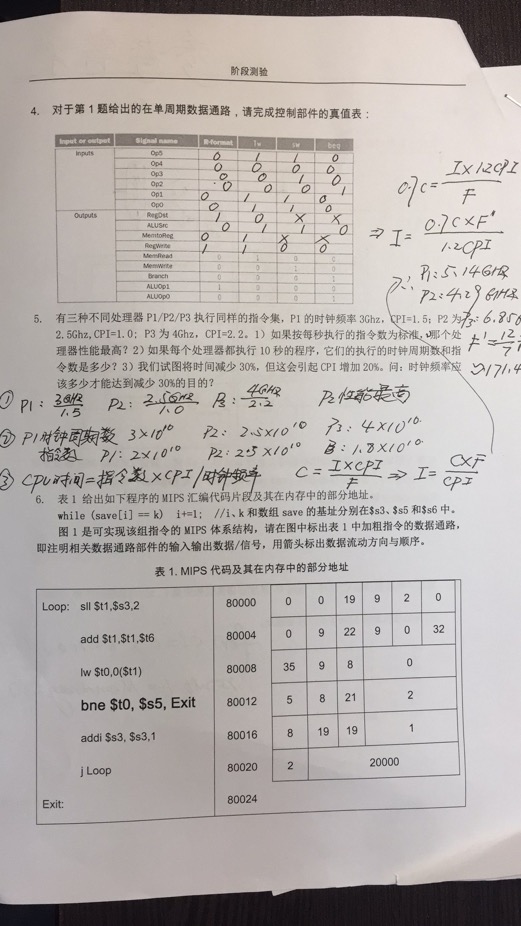 阶段测验
4. 对于第 1 题给出的在单周期数据通路，请完成控制部件的真值表：
Input or output Signal name R-format lw sw beq
Inputs Op5 0 1 1 0
Op4 0 0 0 0
Op3 0 0 1 0
Op2 0 0 0 1
Op1 0 1 1 0
Op0 0 1 1 0
Outputs RegDst 1 0 X X
ALUSrc 0 1 1 0
MemtoReg 0 1 X X
RegWrite 1 1 0 0
MemRead 0 1 0 0
MemWrite 0 0 1 0
Branch 0 0 0 1
ALUOp1 1 0 0 0
ALUOp0 0 0 0 1
0.7C = I×1.2CPI / F
⇒ I = 0.7C×F' / 1.2CPI
∴ P1: 5.14GHz
P2: 4.29GHz
P3: 6.85G
F' = 12/7
≈171.4
5. 有三种不同处理器 P1/P2/P3 执行同样的指令集，P1 的时钟频率 3Ghz，CPI=1.5；P2 为
2.5Ghz,CPI=1.0; P3 为 4Ghz, CPI=2.2。1）如果按每秒执行的指令数为标准，哪个处
理器性能最高？2）如果每个处理器都执行 10 秒的程序，它们的执行的时钟周期数和指
令数是多少？3）我们试图将时间减少 30%，但这会引起 CPI 增加 20%。问：时钟频率应
该多少才能达到减少 30%的目的？
① P1: 3GHz / 1.5 P2: 2.5GHz / 1.0 P3: 4GHz / 2.2 P2性能最高
② P1时钟周期数 3×10¹⁰ P2: 2.5×10¹⁰ P3: 4×10¹⁰
指令数 P1: 2×10¹⁰ P2: 2.5×10¹⁰ P3: 1.8×10¹⁰
③ CPU时间=指令数×CPI/时钟频率 C = I×CPI / F ⇒ I = C×F / CPI
6. 表 1 给出如下程序的 MIPS 汇编代码片段及其在内存中的部分地址。
while (save[i] == k) i+=1; //i、k 和数组 save 的基址分别在$s3、$s5 和$s6 中。
图 1 是可实现该组指令的 MIPS 体系结构，请在图中标出表 1 中加粗指令的数据通路，
即注明相关数据通路部件的输入输出数据/信号，用箭头标出数据流动方向与顺序。
表 1. MIPS 代码及其在内存中的部分地址
Loop: sll $t1,$s3,2 80000 0 0 19 9 2 0
add $t1,$t1,$t6 80004 0 9 22 9 0 32
lw $t0,0($t1) 80008 35 9 8 0
bne $t0, $s5, Exit 80012 5 8 21 2
addi $s3, $s3,1 80016 8 19 19 1
j Loop 80020 2 20000
Exit: 80024